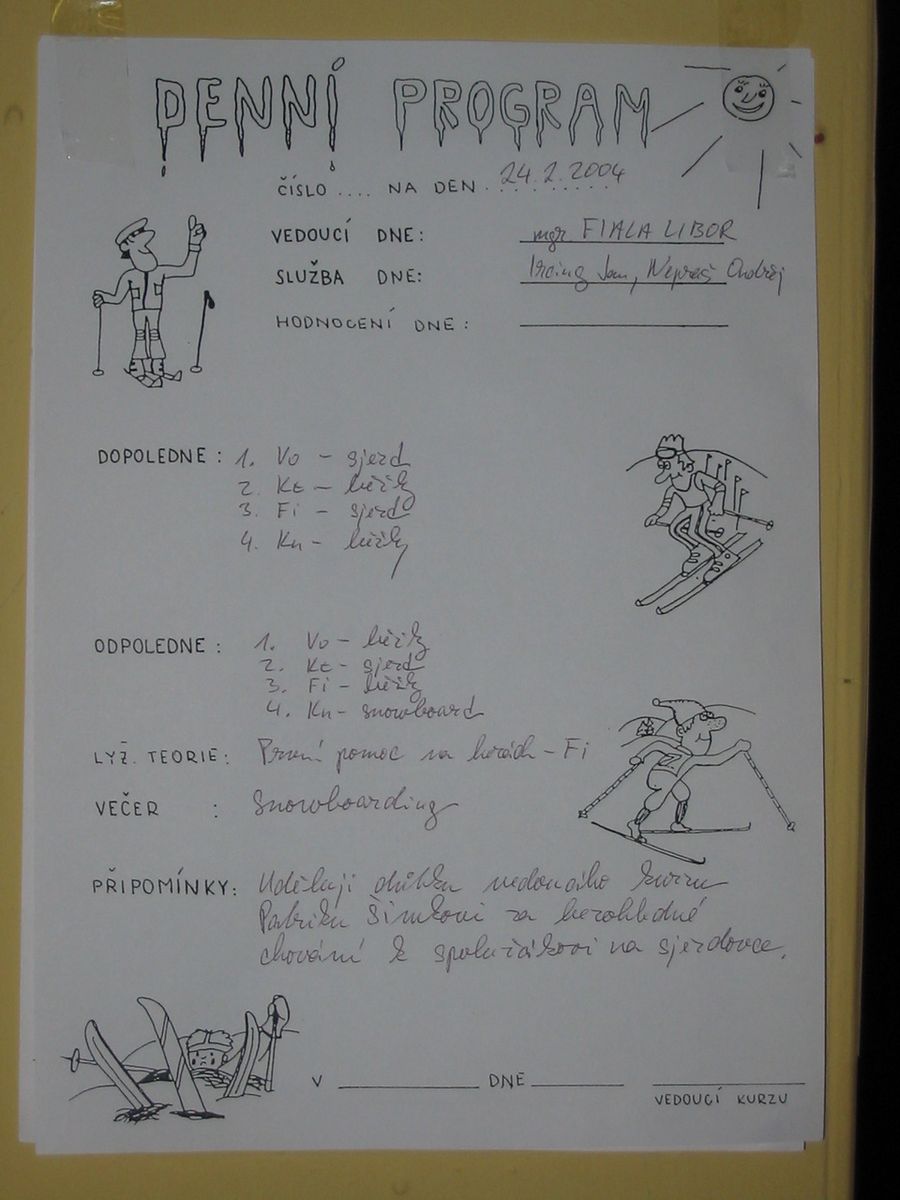 DENNÍ PROGRAM
ČÍSLO .... NA DEN 24.2.2004
VEDOUCÍ DNE: mgr. FIALA LIBOR
SLUŽBA DNE: Irding Jan, Nepraš Ondřej
HODNOCENÍ DNE:
DOPOLEDNE: 1. Vo - sjezd
2. Kt - běžky
3. Fi - sjezd
4. Kn - běžky
ODPOLEDNE: 1. Vo - běžky
2. Kt - sjezd
3. Fi - běžky
4. Kn - snowboard
LYŽ. TEORIE: První pomoc na horách - Fi
VEČER : Snowboarding
PŘIPOMÍNKY: Uděluji důtku vedoucího kurzu
Patriku Šimkovi za bezohledné
chování k spolužákovi na sjezdovce.
V DNE
VEDOUCÍ KURZU